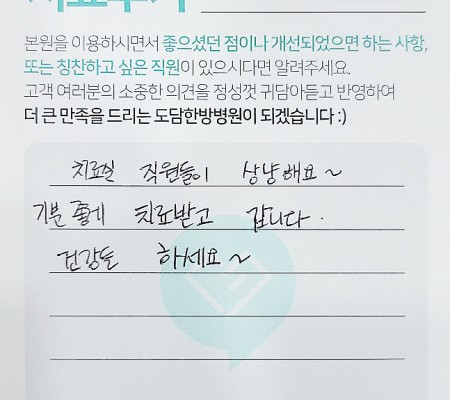 치료후기
본원을 이용하시면서 좋으셨던 점이나 개선되었으면 하는 사항,
또는 칭찬하고 싶은 직원이 있으시다면 알려주세요.
고객 여러분의 소중한 의견을 정성껏 귀담아듣고 반영하여
더 큰 만족을 드리는 도담한방병원이 되겠습니다 :)
치료실 직원들이 상냥해요~
기분 좋게 치료받고 갑니다.
건강들 하세요~